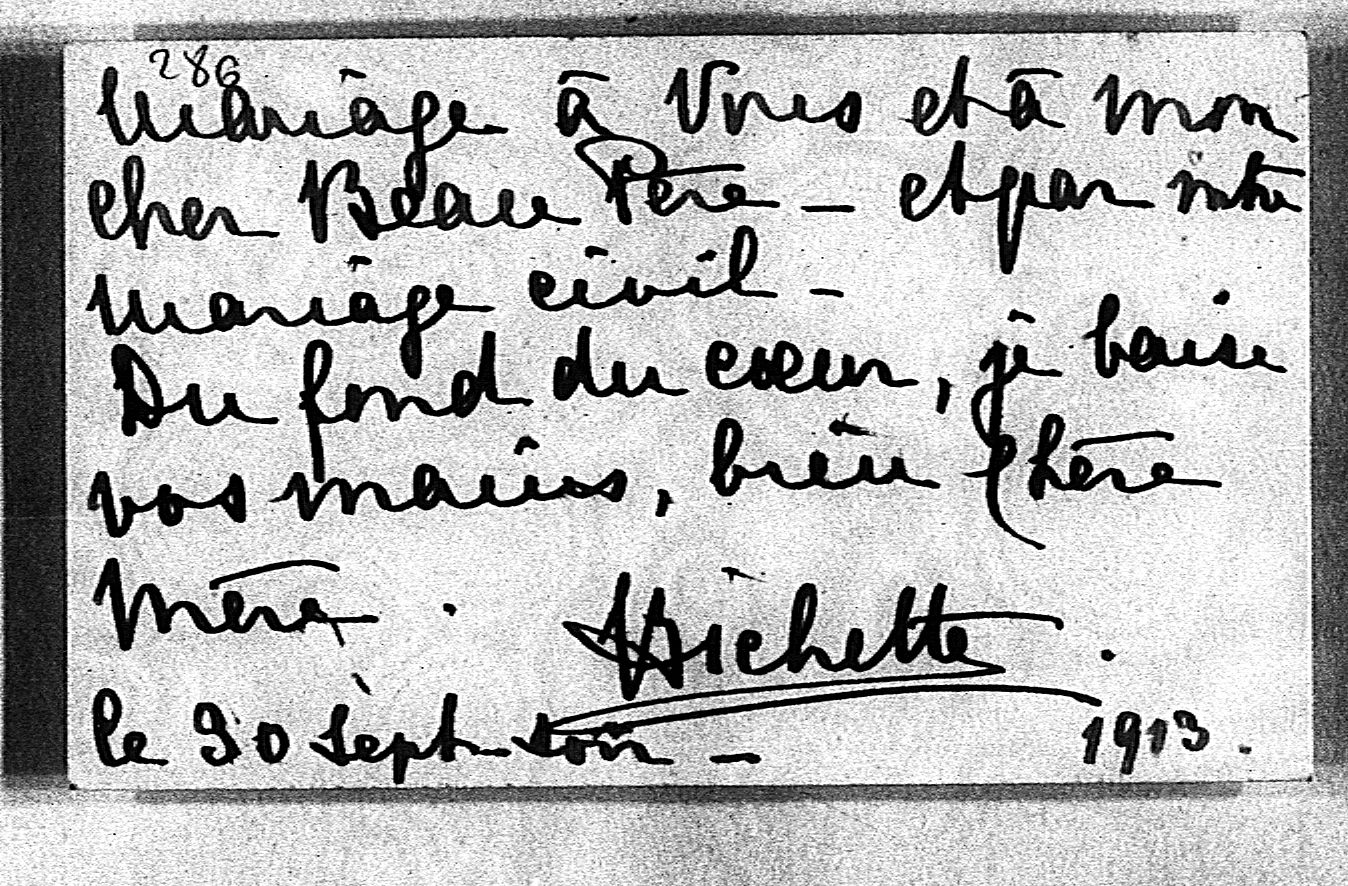 286
mariage à Vous et à mon
cher Beau Père — et par notre
mariage civil —
Du fond du cœur, je baise
vos mains, bien chère
Mère.
Michette.
le 30 Sept soir — 1913.